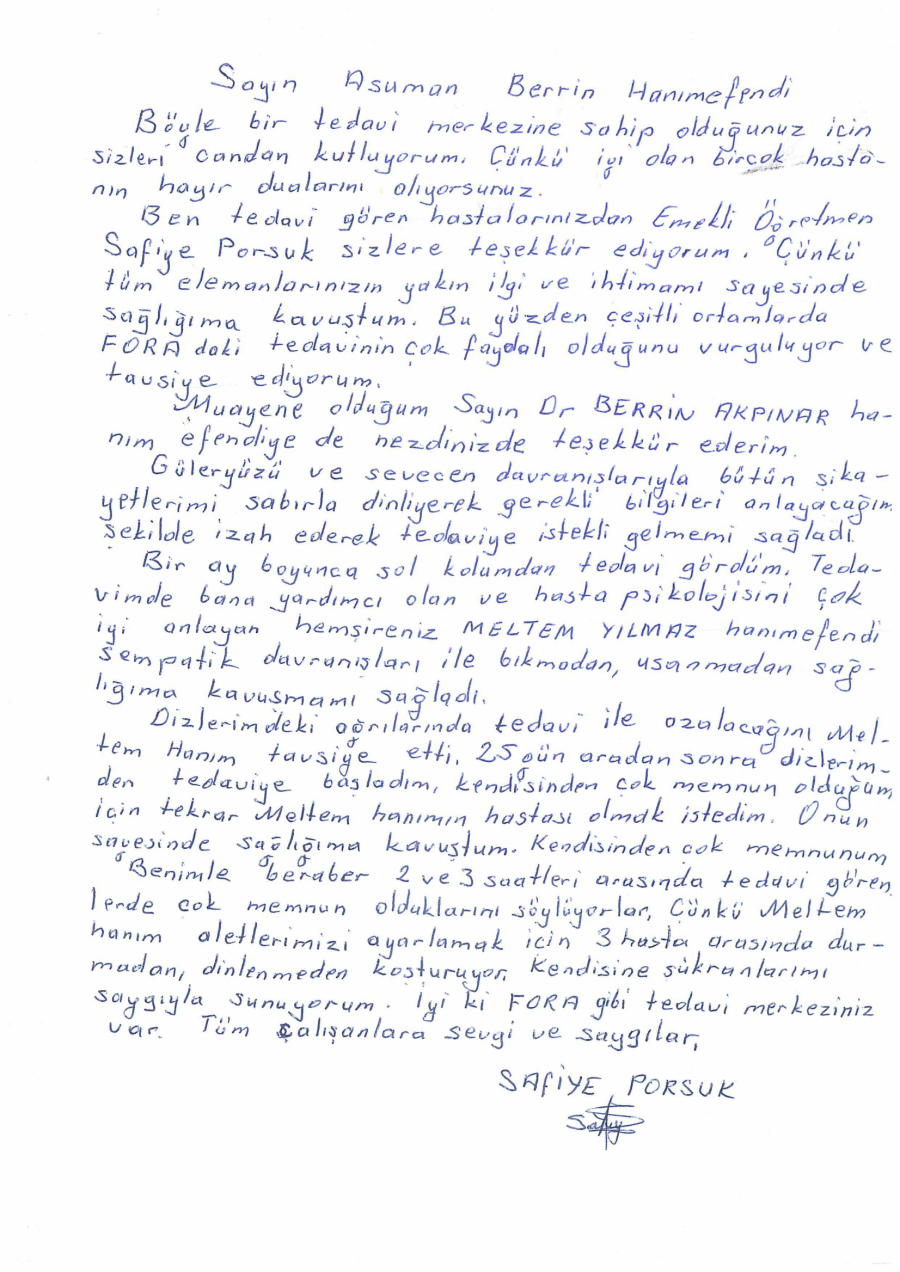 Sayın Asuman Berrin Hanımefendi
Böyle bir tedavi merkezine sahip olduğunuz için
sizleri candan kutluyorum. Çünkü iyi olan birçok hasta-
nın hayır dualarını alıyorsunuz.
Ben tedavi gören hastalarınızdan Emekli Öğretmen
Safiye Porsuk sizlere teşekkür ediyorum. Çünkü
tüm elemanlarınızın yakın ilgi ve ihtimamı sayesinde
sağlığıma kavuştum. Bu yüzden çeşitli ortamlarda
FORA daki tedavinin çok faydalı olduğunu vurguluyor ve
tavsiye ediyorum.
Muayene olduğum Sayın Dr BERRİN AKPINAR ha-
nım efendiye de nezdinizde teşekkür ederim.
Güleryüzü ve sevecen davranışlarıyla bütün şika-
yetlerimi sabırla dinliyerek gerekli bilgileri anlayacağım
şekilde izah ederek tedaviye istekli gelmemi sağladı.
Bir ay boyunca sol kolumdan tedavi gördüm. Teda-
vimde bana yardımcı olan ve hasta psikolojisini çok
iyi anlayan hemşireniz MELTEM YILMAZ hanımefendi
sempatik davranışları ile bıkmadan, usanmadan sağ-
lığıma kavuşmamı sağladı.
Dizlerimdeki ağrılarında tedavi ile azalacağını Mel-
tem Hanım tavsiye etti. 25 gün aradan sonra dizlerim-
den tedaviye başladım, kendisinden çok memnun olduğum
için tekrar Meltem hanımın hastası olmak istedim. Onun
sayesinde sağlığıma kavuştum. Kendisinden çok memnunum
Benimle beraber 2 ve 3 saatleri arasında tedavi gören
lerde çok memnun olduklarını söylüyorlar, Çünkü Meltem
hanım aletlerimizi ayarlamak için 3 hasta arasında dur-
madan, dinlenmeden koşturuyor. Kendisine şükranlarımı
saygıyla sunuyorum. İyi ki FORA gibi tedavi merkeziniz
var. Tüm çalışanlara sevgi ve saygılar,
SAFİYE PORSUK